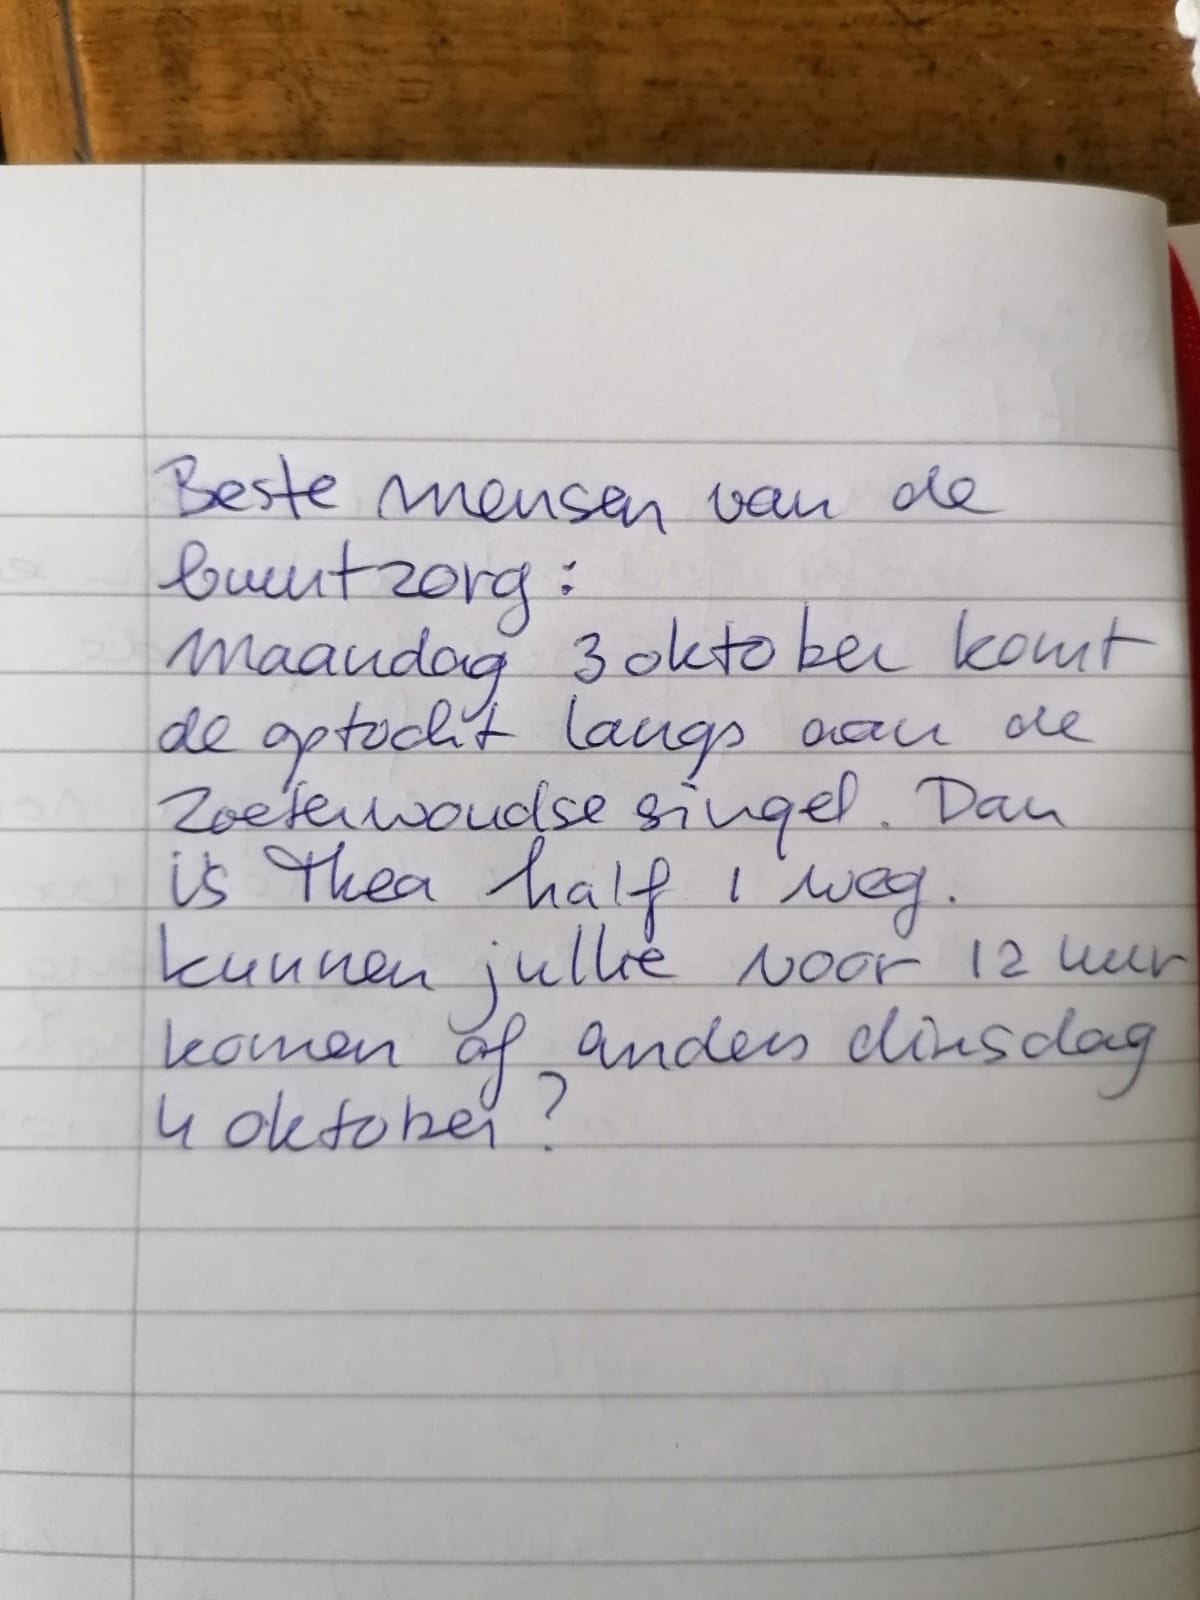 Beste mensen van de
buurtzorg:
Maandag 3 oktober komt
de optocht langs aan de
Zoeterwoudse singel. Dan
is Thea half 1 weg.
kunnen jullie voor 12 uur
komen of anders dinsdag
4 oktober?